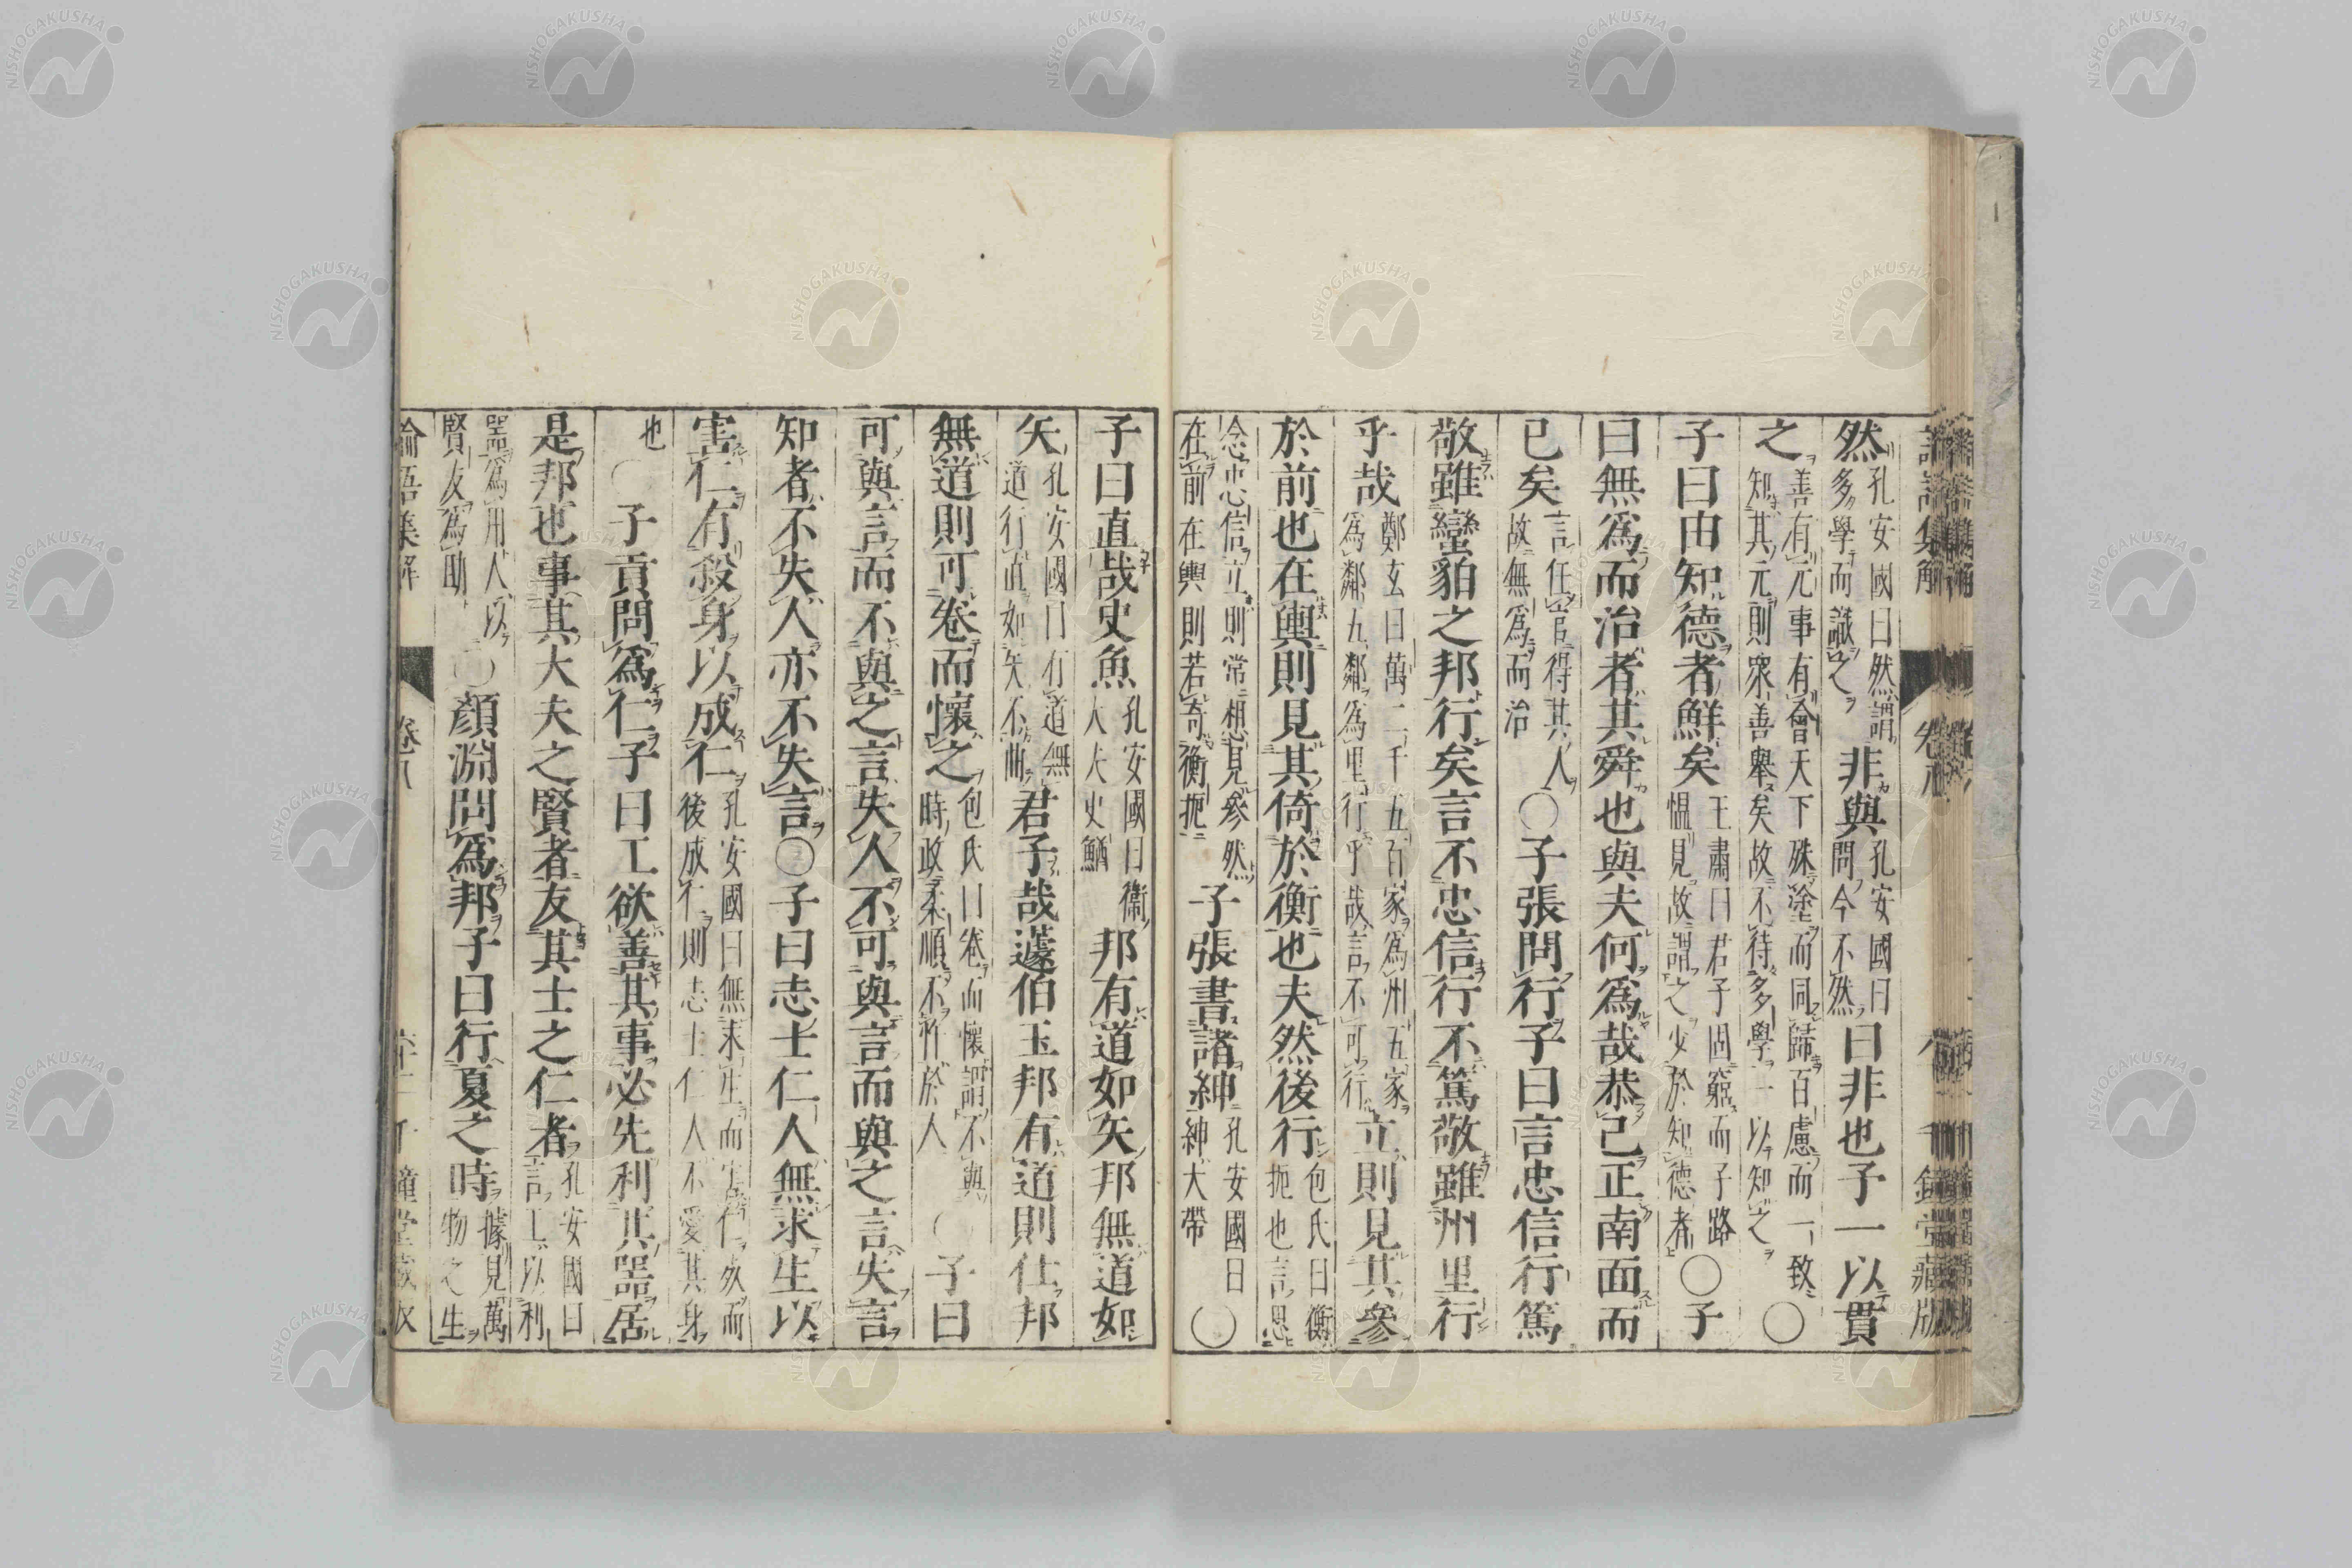 然孔安國曰然謂多學而識之非與孔安國曰問今不然曰非也子一以貫
之善有元事有會天下殊塗而同歸百慮而一致知其元則衆善舉矣故不待多學一以知之〇
子曰由知德者鮮矣王肅曰君子固窮而子路慍見故謂之少於知德者〇子
曰無爲而治者其舜也與夫何爲哉恭己正南面而
已矣言任官得其人故無爲而治〇子張問行子曰言忠信行篤
敬雖蠻貊之邦行矣言不忠信行不篤敬雖州里行
乎哉鄭玄曰萬二千五百家爲州五家爲鄰五鄰爲里行乎哉言不可行立則見其參
於前也在輿則見其倚於衡也夫然後行包氏曰衡扼也言思
念忠信立則常想見參然在前在輿則若倚衡扼子張書諸紳孔安國曰紳大帶〇
子曰直哉史魚孔安國曰衞大夫史鰌邦有道如矢邦無道如
矢孔安國曰有道無道行直如矢不曲君子哉蘧伯玉邦有道則仕邦
無道則可卷而懷之包氏曰卷而懷謂不與時政柔順不忤於人〇子曰
可與言而不與之言失人不可與言而與之言失言
知者不失人亦不失言〇子曰志士仁人無求生以
害仁有殺身以成仁孔安國曰無求生而害仁死而後成仁則志士仁人不愛其身
也〇子貢問爲仁子曰工欲善其事必先利其器居
是邦也事其大夫之賢者友其士之仁者孔安國曰言工以利
器爲用人以賢友爲助〇顏淵問爲邦子曰行夏之時據見萬物之生
論語集解 卷八